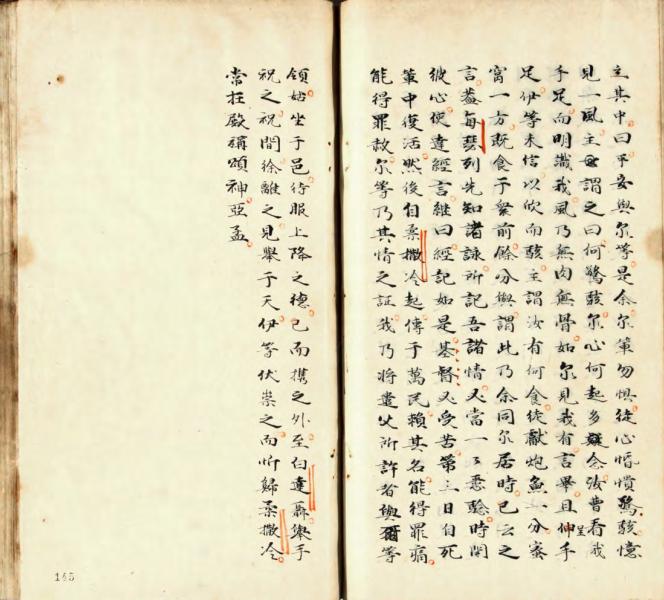 立其中曰平安與尔等是余尔軰勿惧徒心惛憒驚駭憶
見一風主母謂之曰何驚駭尔心何起多疑念汝曹看我
手足而明識我風乃無肉無骨如尔見我有言畢且伸呈手
足伊等未信以欣而駭主謂汝有何食徒獻炮魚一分蜜
窩一方既食于衆前餘分與謂此乃余同尔居時已云之
言葢每瑟列先知諸詠所記吾諸情又當一一悉驗時開
彼心使達經言継曰經記如是基督又受苦第三日自死
軰中復活然後自柔撒冷起傳于萬民賴其名能得罪痛
能得罪赦尔等乃其情之証我乃将遣父所許者與爾等
領姑坐于邑待服上降之德已而携之外至白達聶舉手
祝之祝間徐離之見舉于天伊等伏崇之而忻歸柔撒冷
常在殿稱頌神亞孟
145